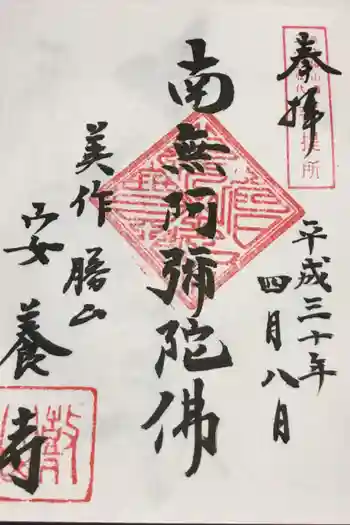 奉拝
平成三十年
四月八日
南無阿彌陀佛
美作 勝山
安養寺